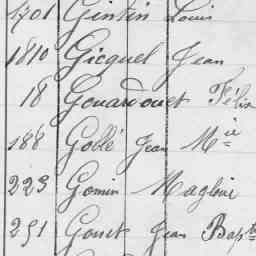 1701 Gintin Louis
1810 Gicquel Jean
18 Gouardouet Félix
188 Gollé Jean Mie
223 Gomin Magloire
251 Gouet Jean Bapte